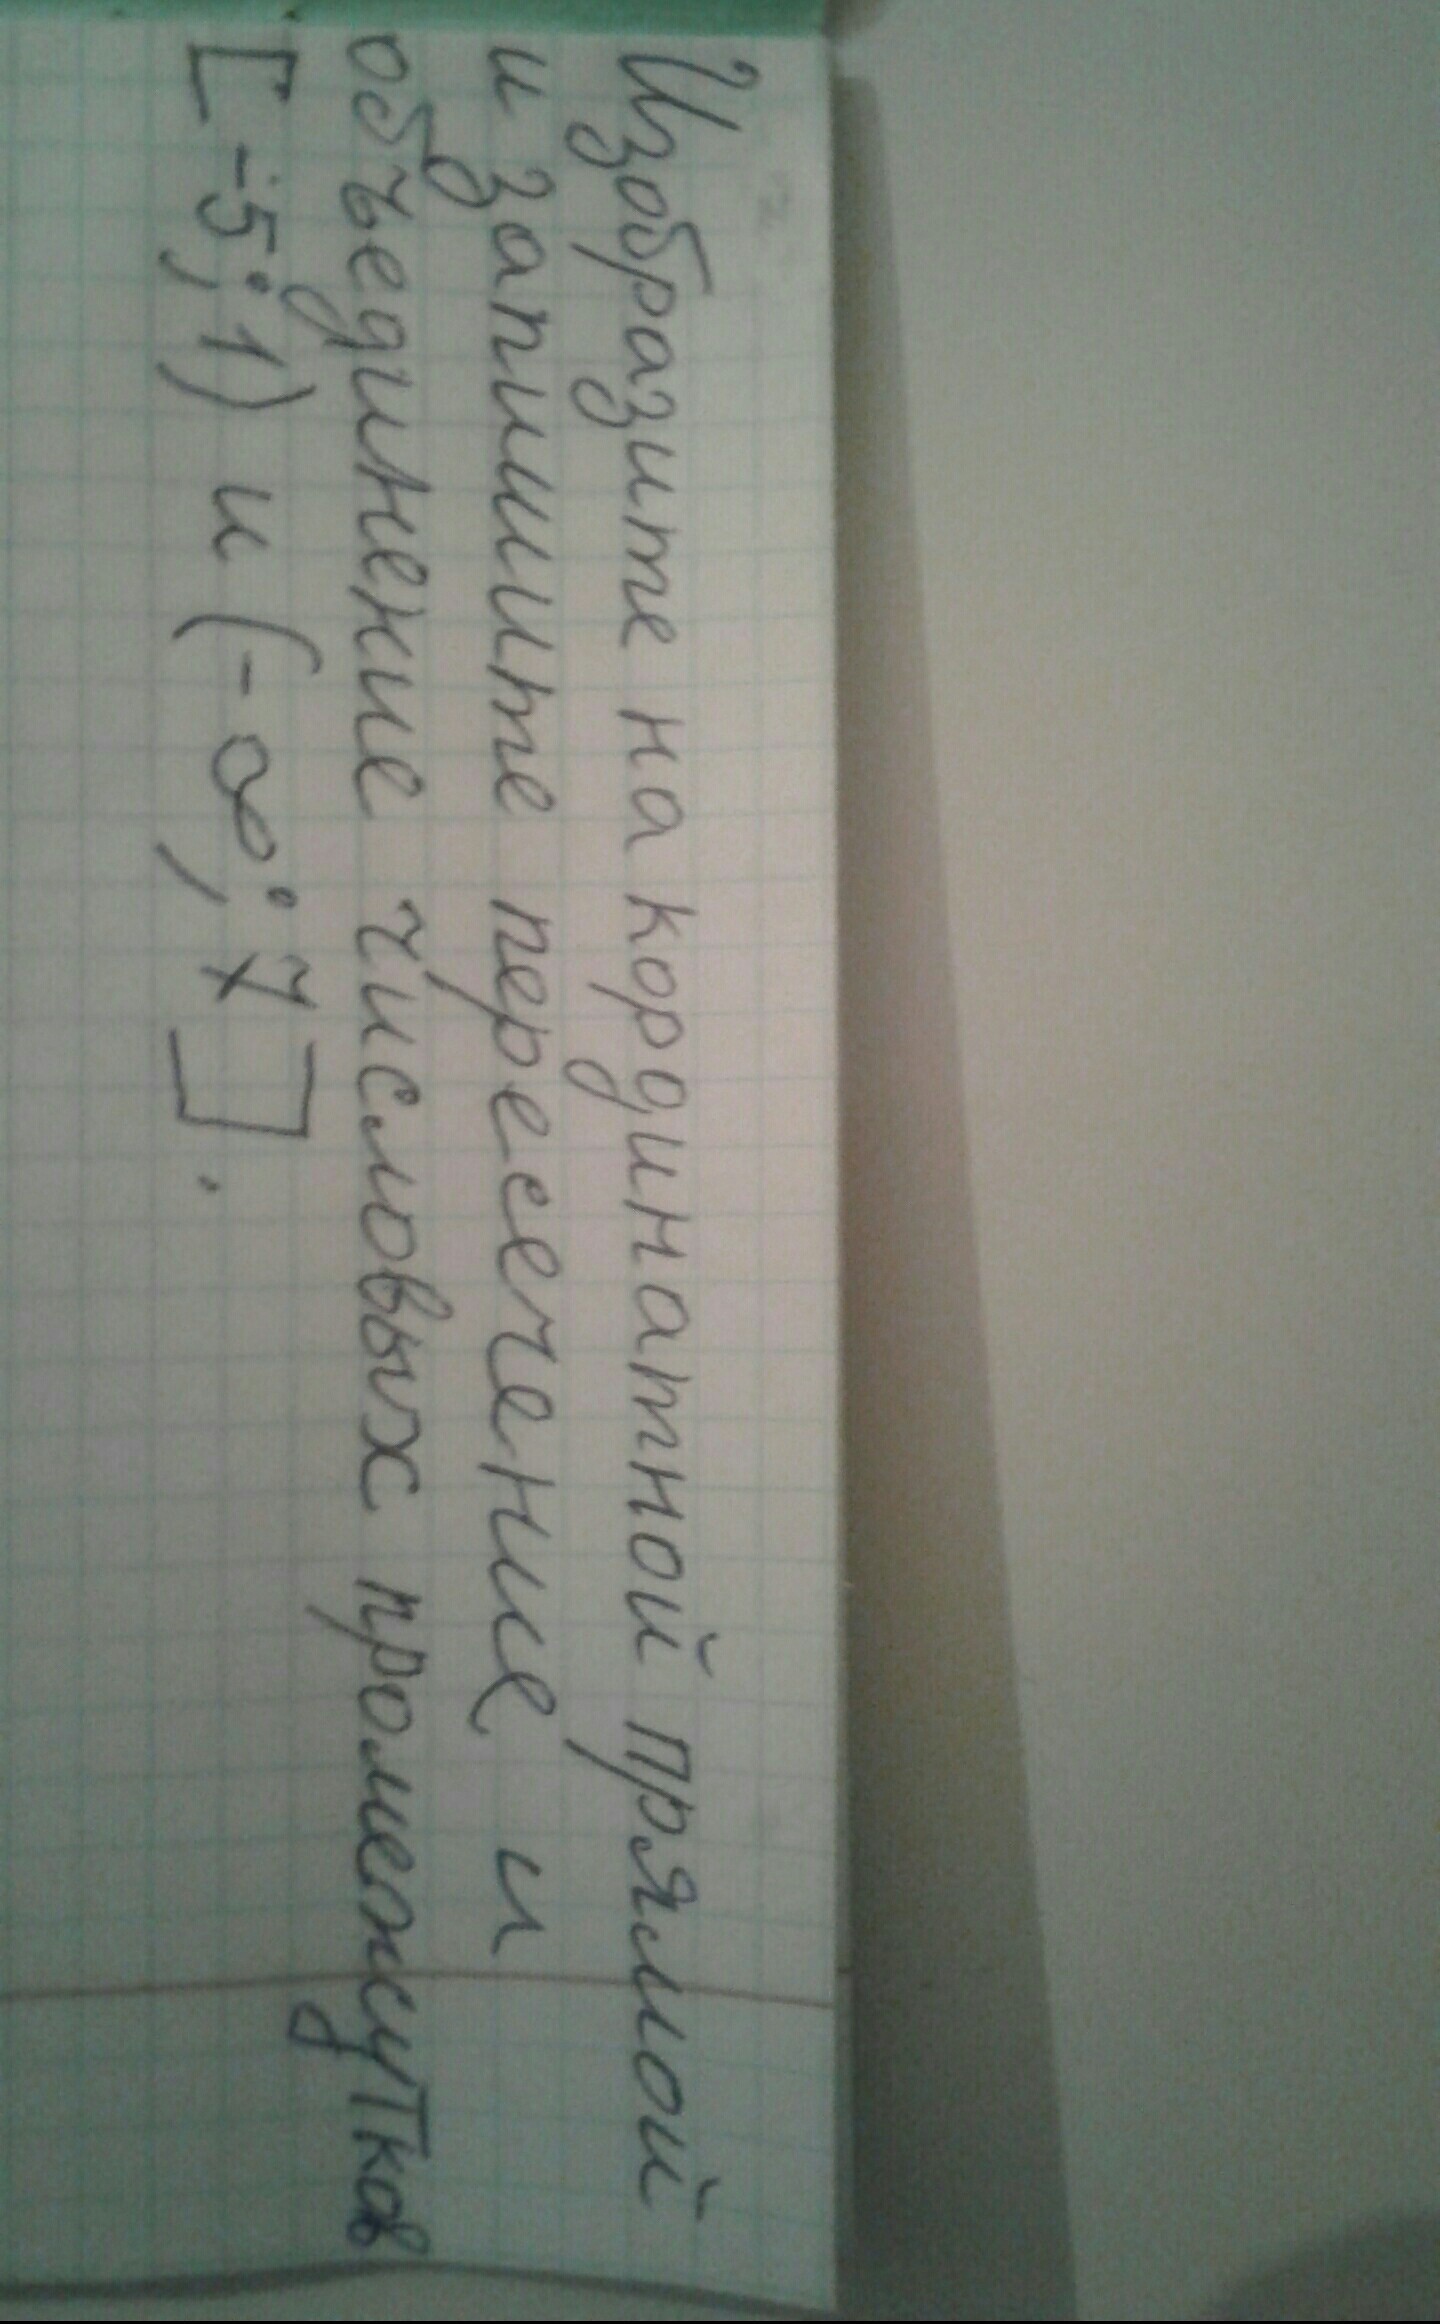 Изобразите на кординатной прямой
и запишите пересечение и
объединение числовых промежутков
[-5; 1) и (-∞; 7].